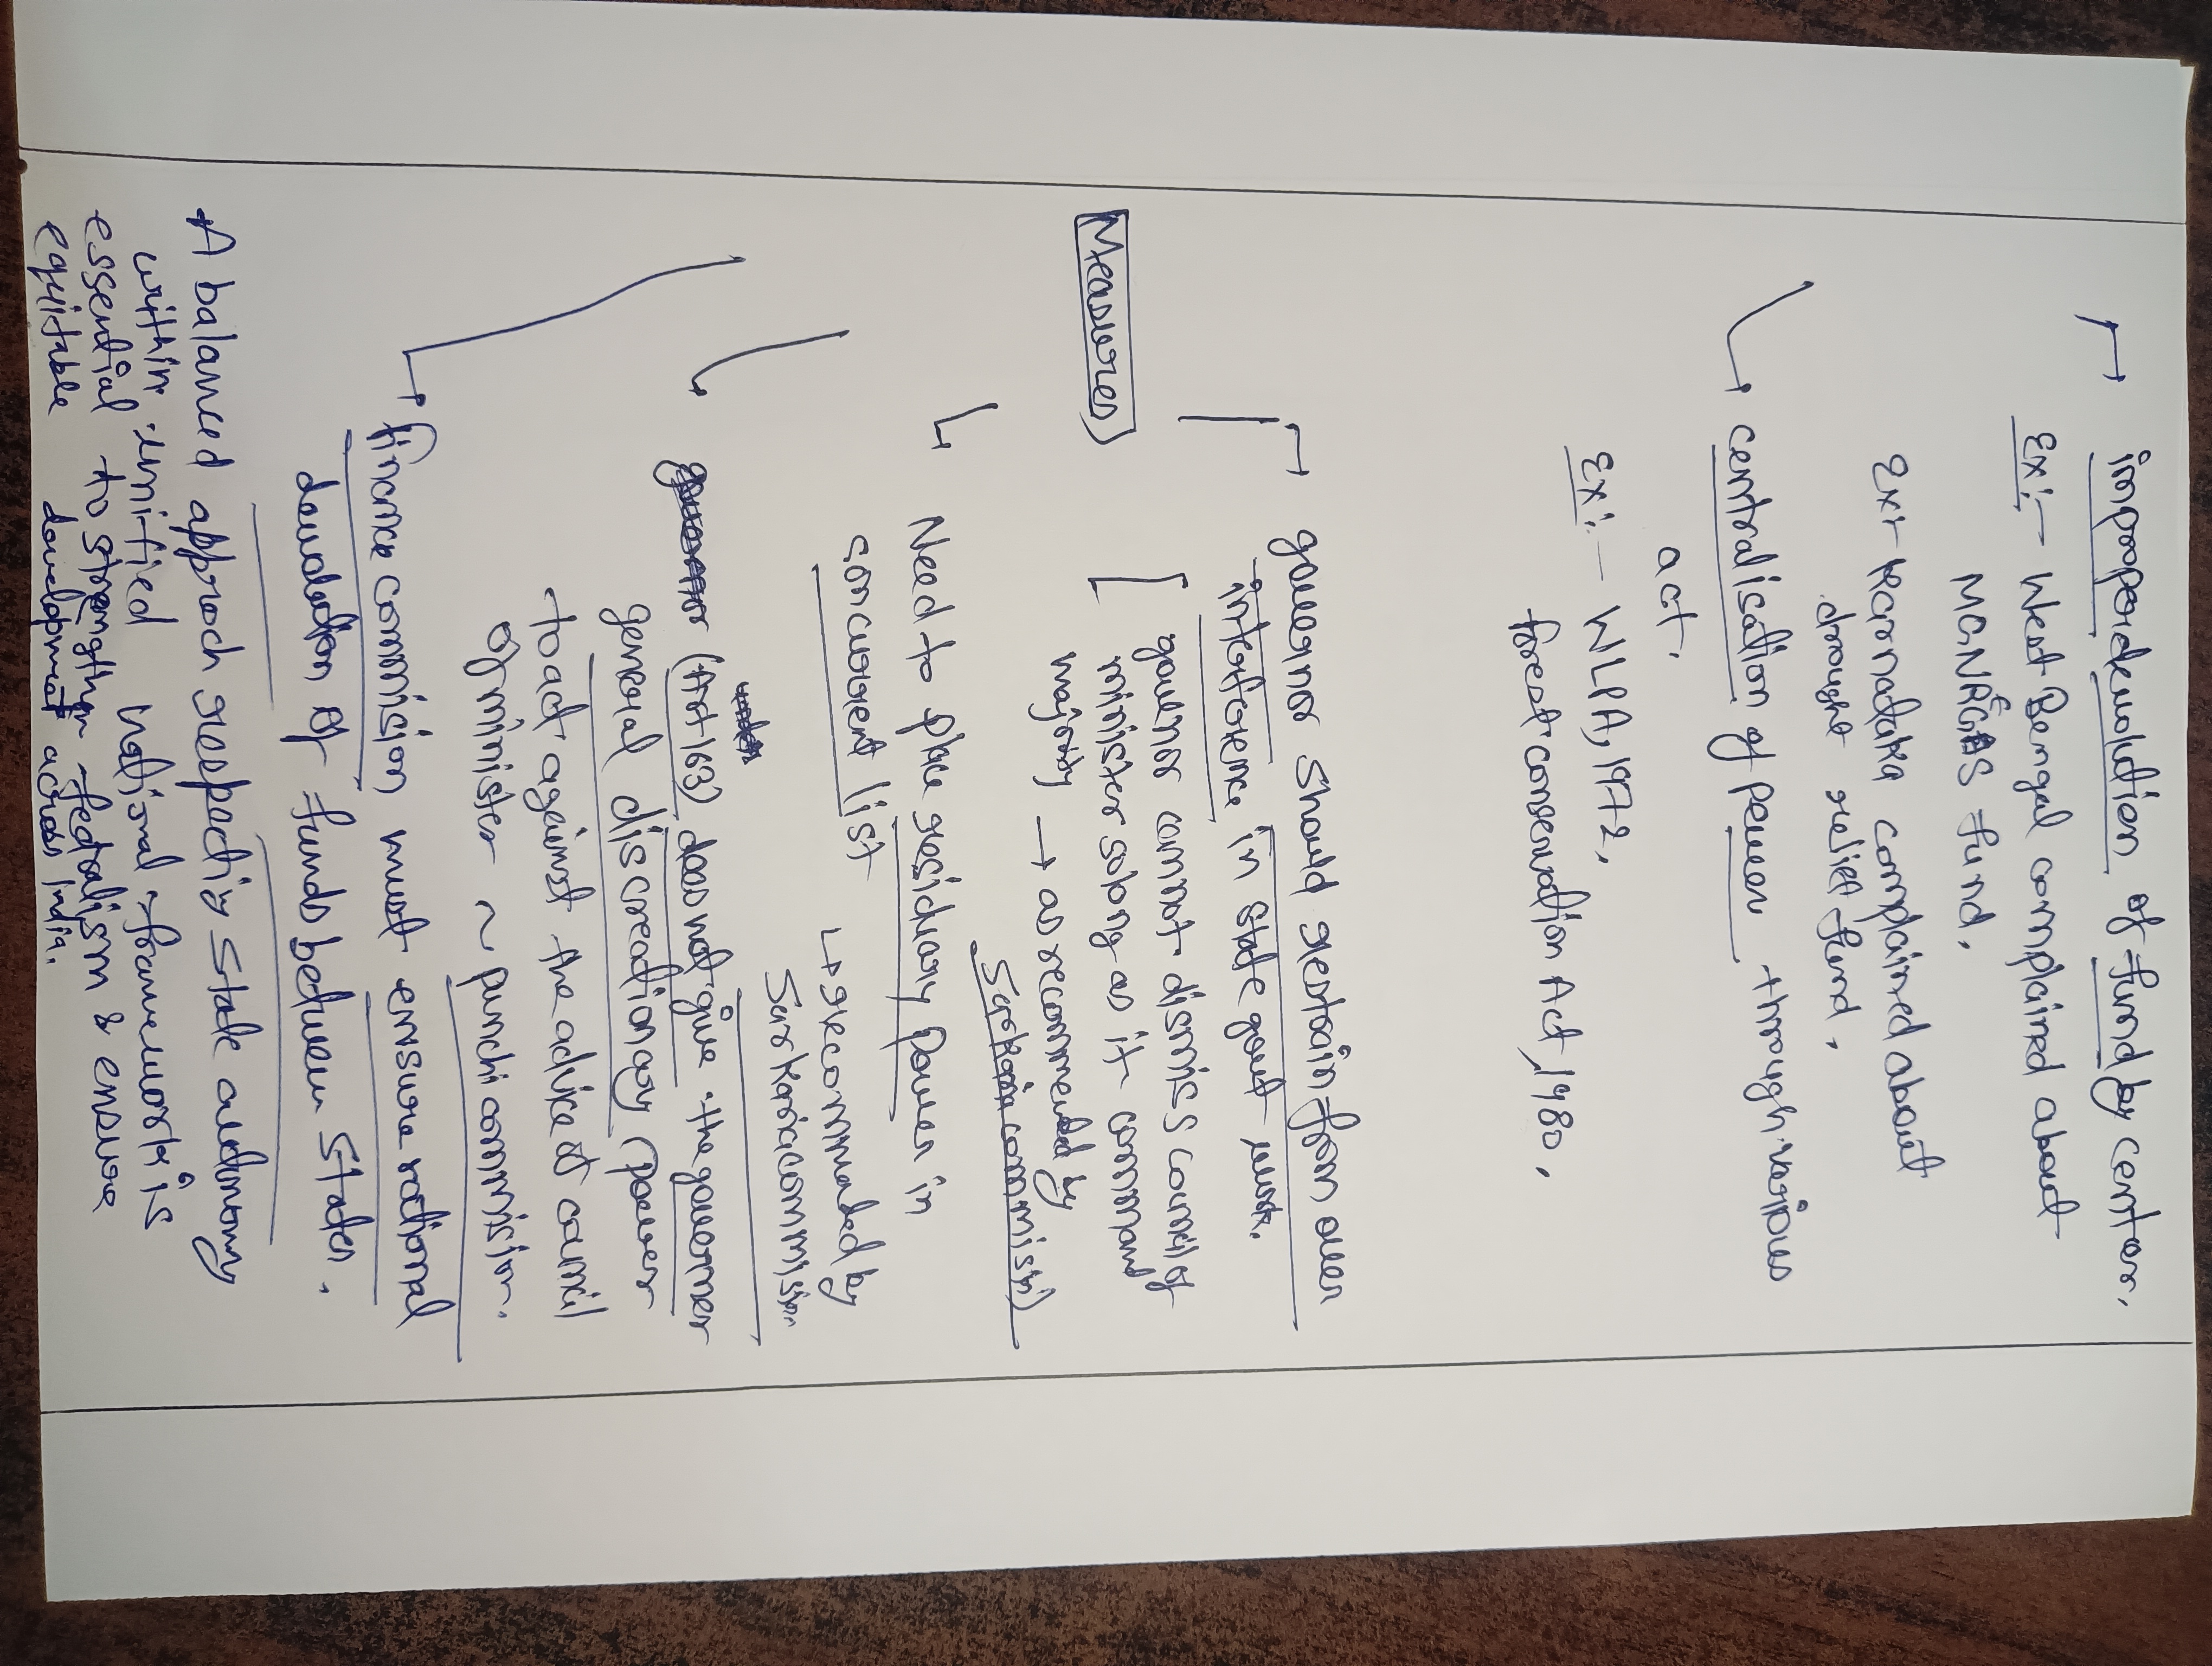 improper devolution of fund by center.
Ex:- West Bengal complained about
MGNREGAS fund.
Ex:- Karnataka complained about
drought relief fund.
centralisation of power through various
act.
Ex:- WLPA, 1972,
forest conservation Act, 1980.
Measures
governor should restain from over
interference in state govt work.
[governor cannot dismiss council of
minister so long as it command
majority → as recommended by
Sarkaria commission)
Need to place residuary power in
concurrent list
↳ recommended by
Sarkaria commission
(Art 163) does not give the governer
general discreationary (power
to act against the advice of council
of minister ~ punchi commision.
finance commision must ensure rational
devolution of funds between States.
A balanced approach respectig State autonomy
within unified national framework is
essential to strengthen federalism & ensure
equitable development across India.